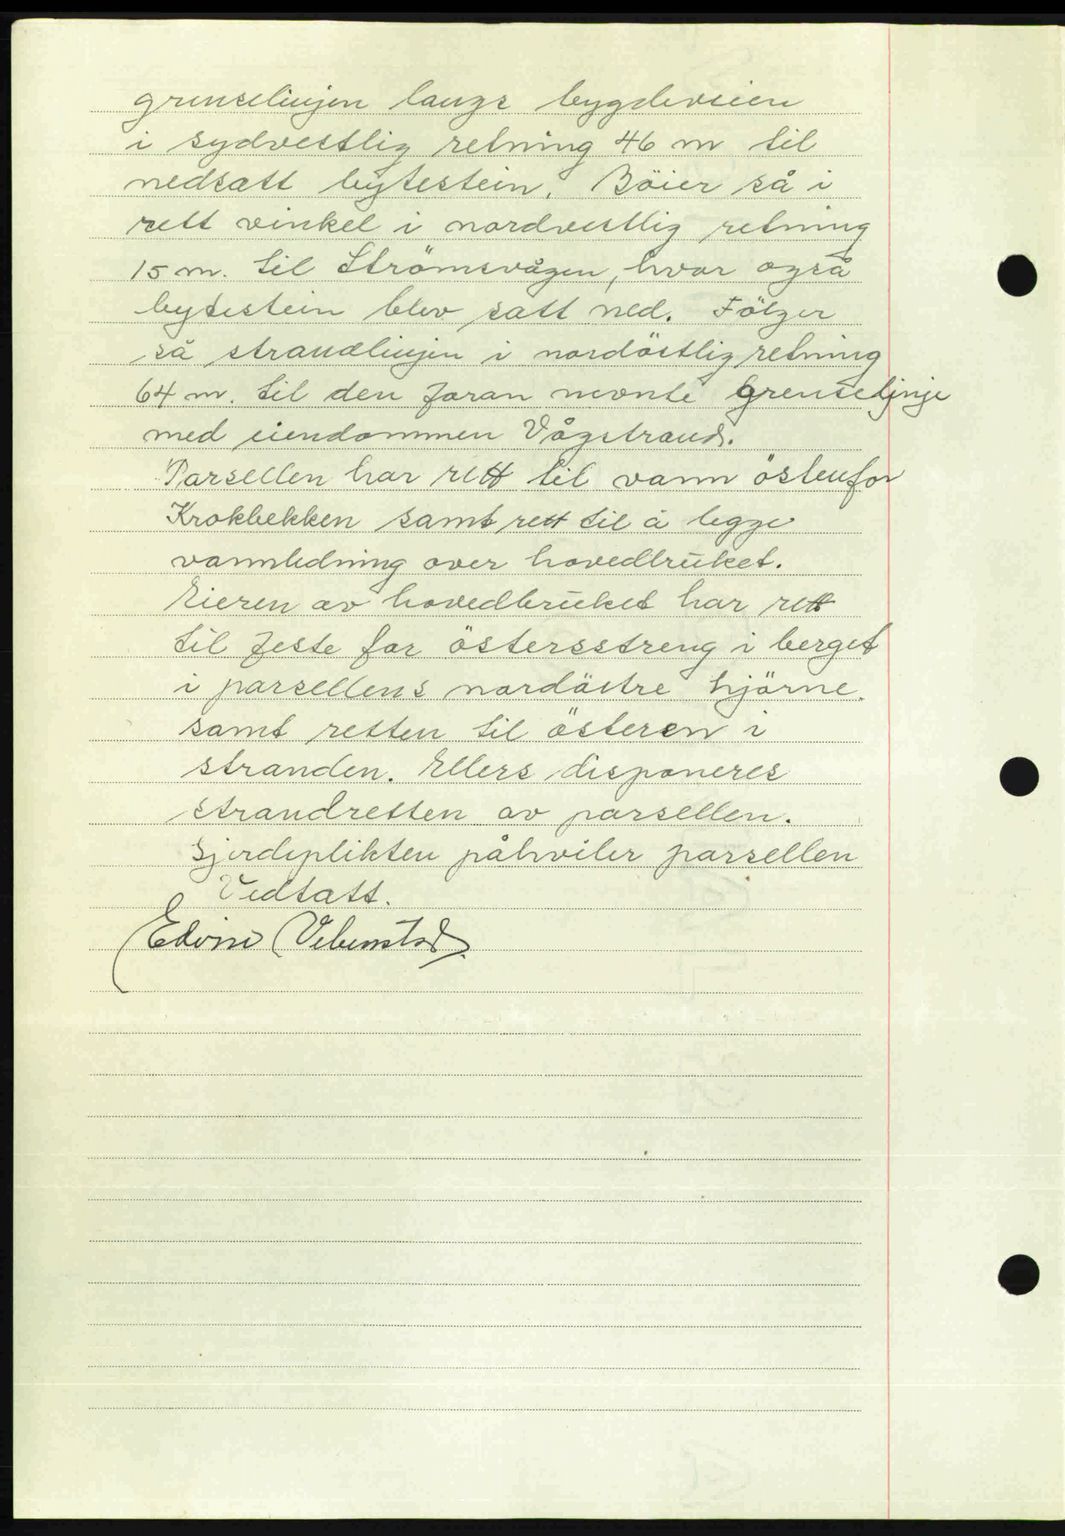 grenselinjen langs bygdeveien
i sydvestlig retning 46 m til
nedsatt bytestein. Böier så i
rett vinkel i nordvestlig retning
15 m. til Strömsvågen, hvor også
bytestein blev satt ned. Fölger
så strandlinjen i nordöstlig retning
64 m. til den foran nevnte grenselinje
med eiendommen Vågstrand.
Parsellen har rett til vann östenfor
Krokbekken samt rett til å legge
vannledning over hovedbruket.
Eieren av hovedbruket har rett
til feste for östersstreng i berget
i parsellens nordöstre hjörne.
samt retten til österen i
stranden. Ellers disponeres
strandretten av parsellen.
Gjerdeplikten påhviler parsellen
Vedtatt.
Edvin